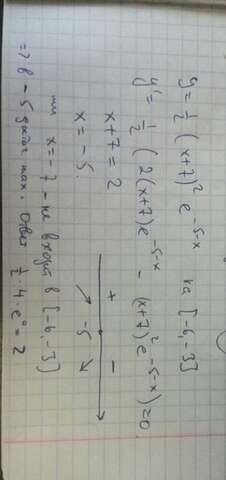 y = 1/2 (x+7)² e^(-5-x) на [-6,-3]
y' = 1/2 (2(x+7)e^(-5-x) - (x+7)² e^(-5-x)) = 0
x+7 = 2
x = -5.
+ -
-5
min x = -7 - не входит в [-6,-3]
=> в -5 max. Ответ 1/2 · 4 · e⁰ = 2